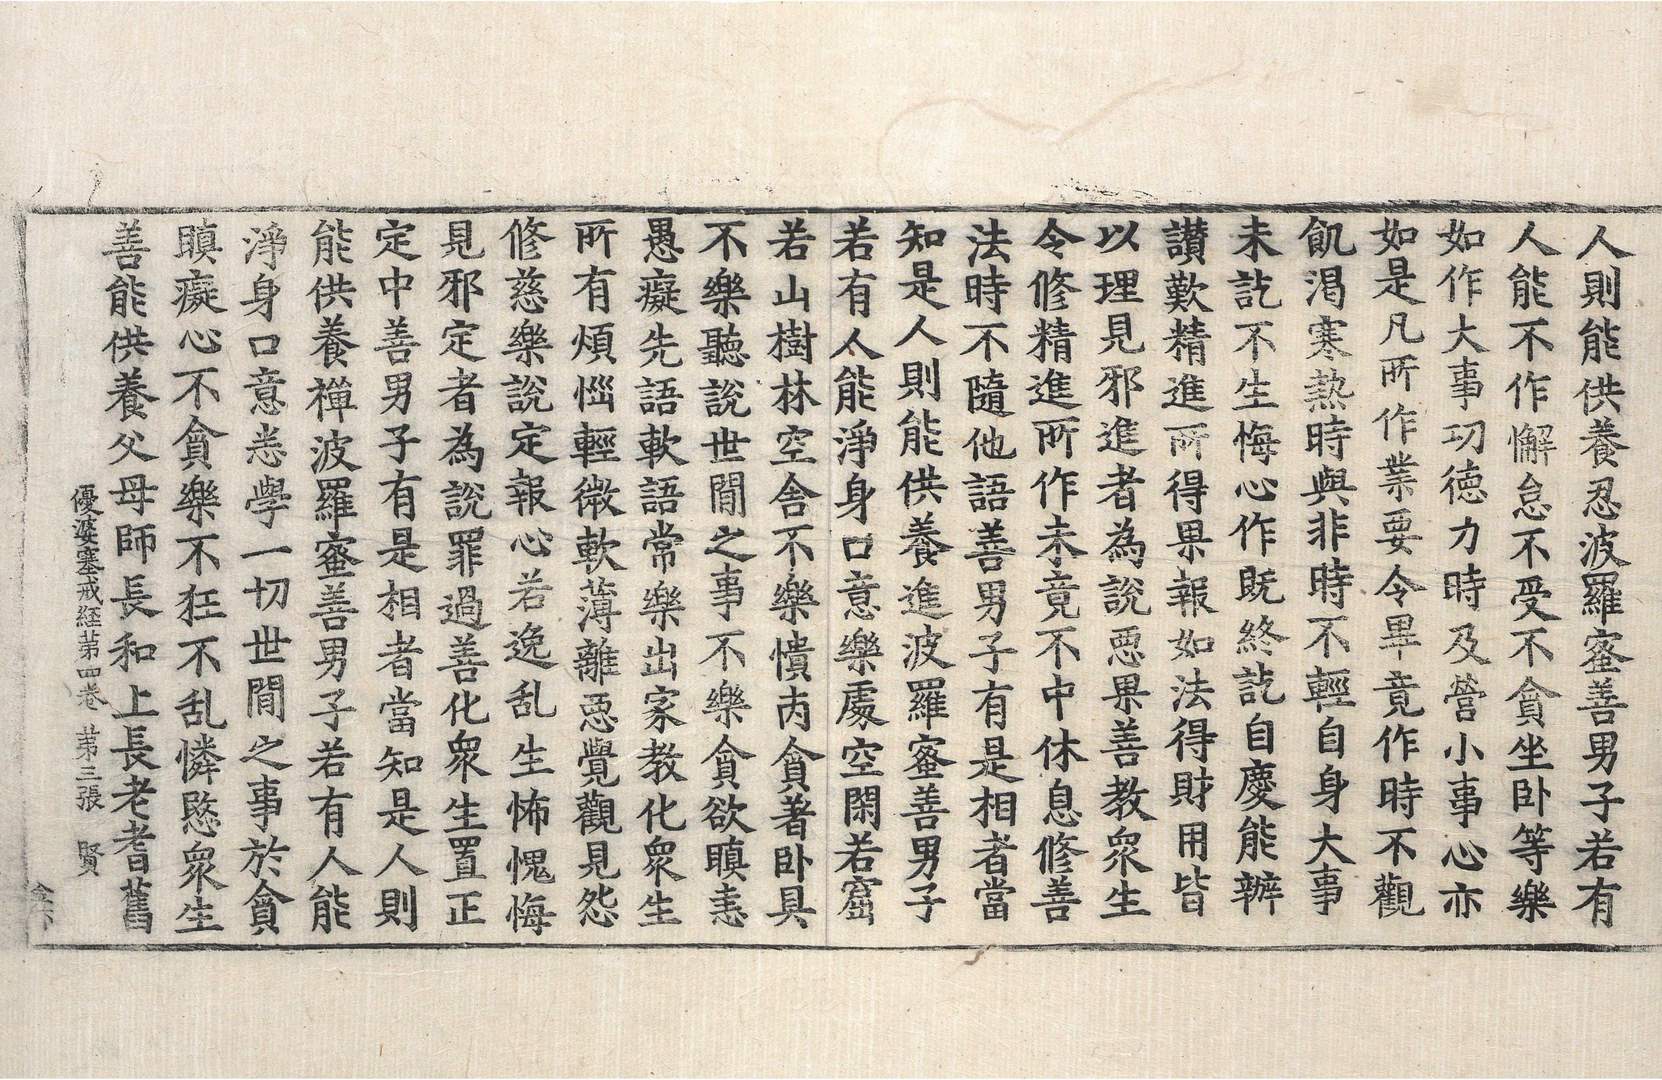 人則能供養忍波羅蜜善男子若有
人能不作懈怠不受不貪坐卧等樂
如作大事功徳力時及營小事心亦
如是凡所作業要令畢竟作時不觀
飢渴寒熱時與非時不輕自身大事
未訖不生悔心作既終訖自慶能辦
讃歎精進所得果報如法得財用皆
以理見邪進者為說惡果善教衆生
令修精進所作未竟不中休息修善
法時不隨他語善男子有是相者當
知是人則能供養進波羅蜜善男子
若有人能淨身口意樂處空閑若窟
若山樹林空舍不樂憒丙貪著卧具
不樂聽說世間之事不樂貪欲瞋恚
愚癡先語軟語常樂出家教化衆生
所有煩惱輕微軟薄離惡覺觀見怨
修慈樂說定報心若逸乱生怖愧悔
見邪定者為說罪過善化衆生置正
定中善男子有是相者當知是人則
能供養禪波羅蜜善男子若有人能
淨身口意悉學一切世間之事於貪
瞋癡心不貪樂不狂不乱憐愍衆生
善能供養父母師長和上長老耆舊
優婆塞戒経苐四卷 苐三張 賢